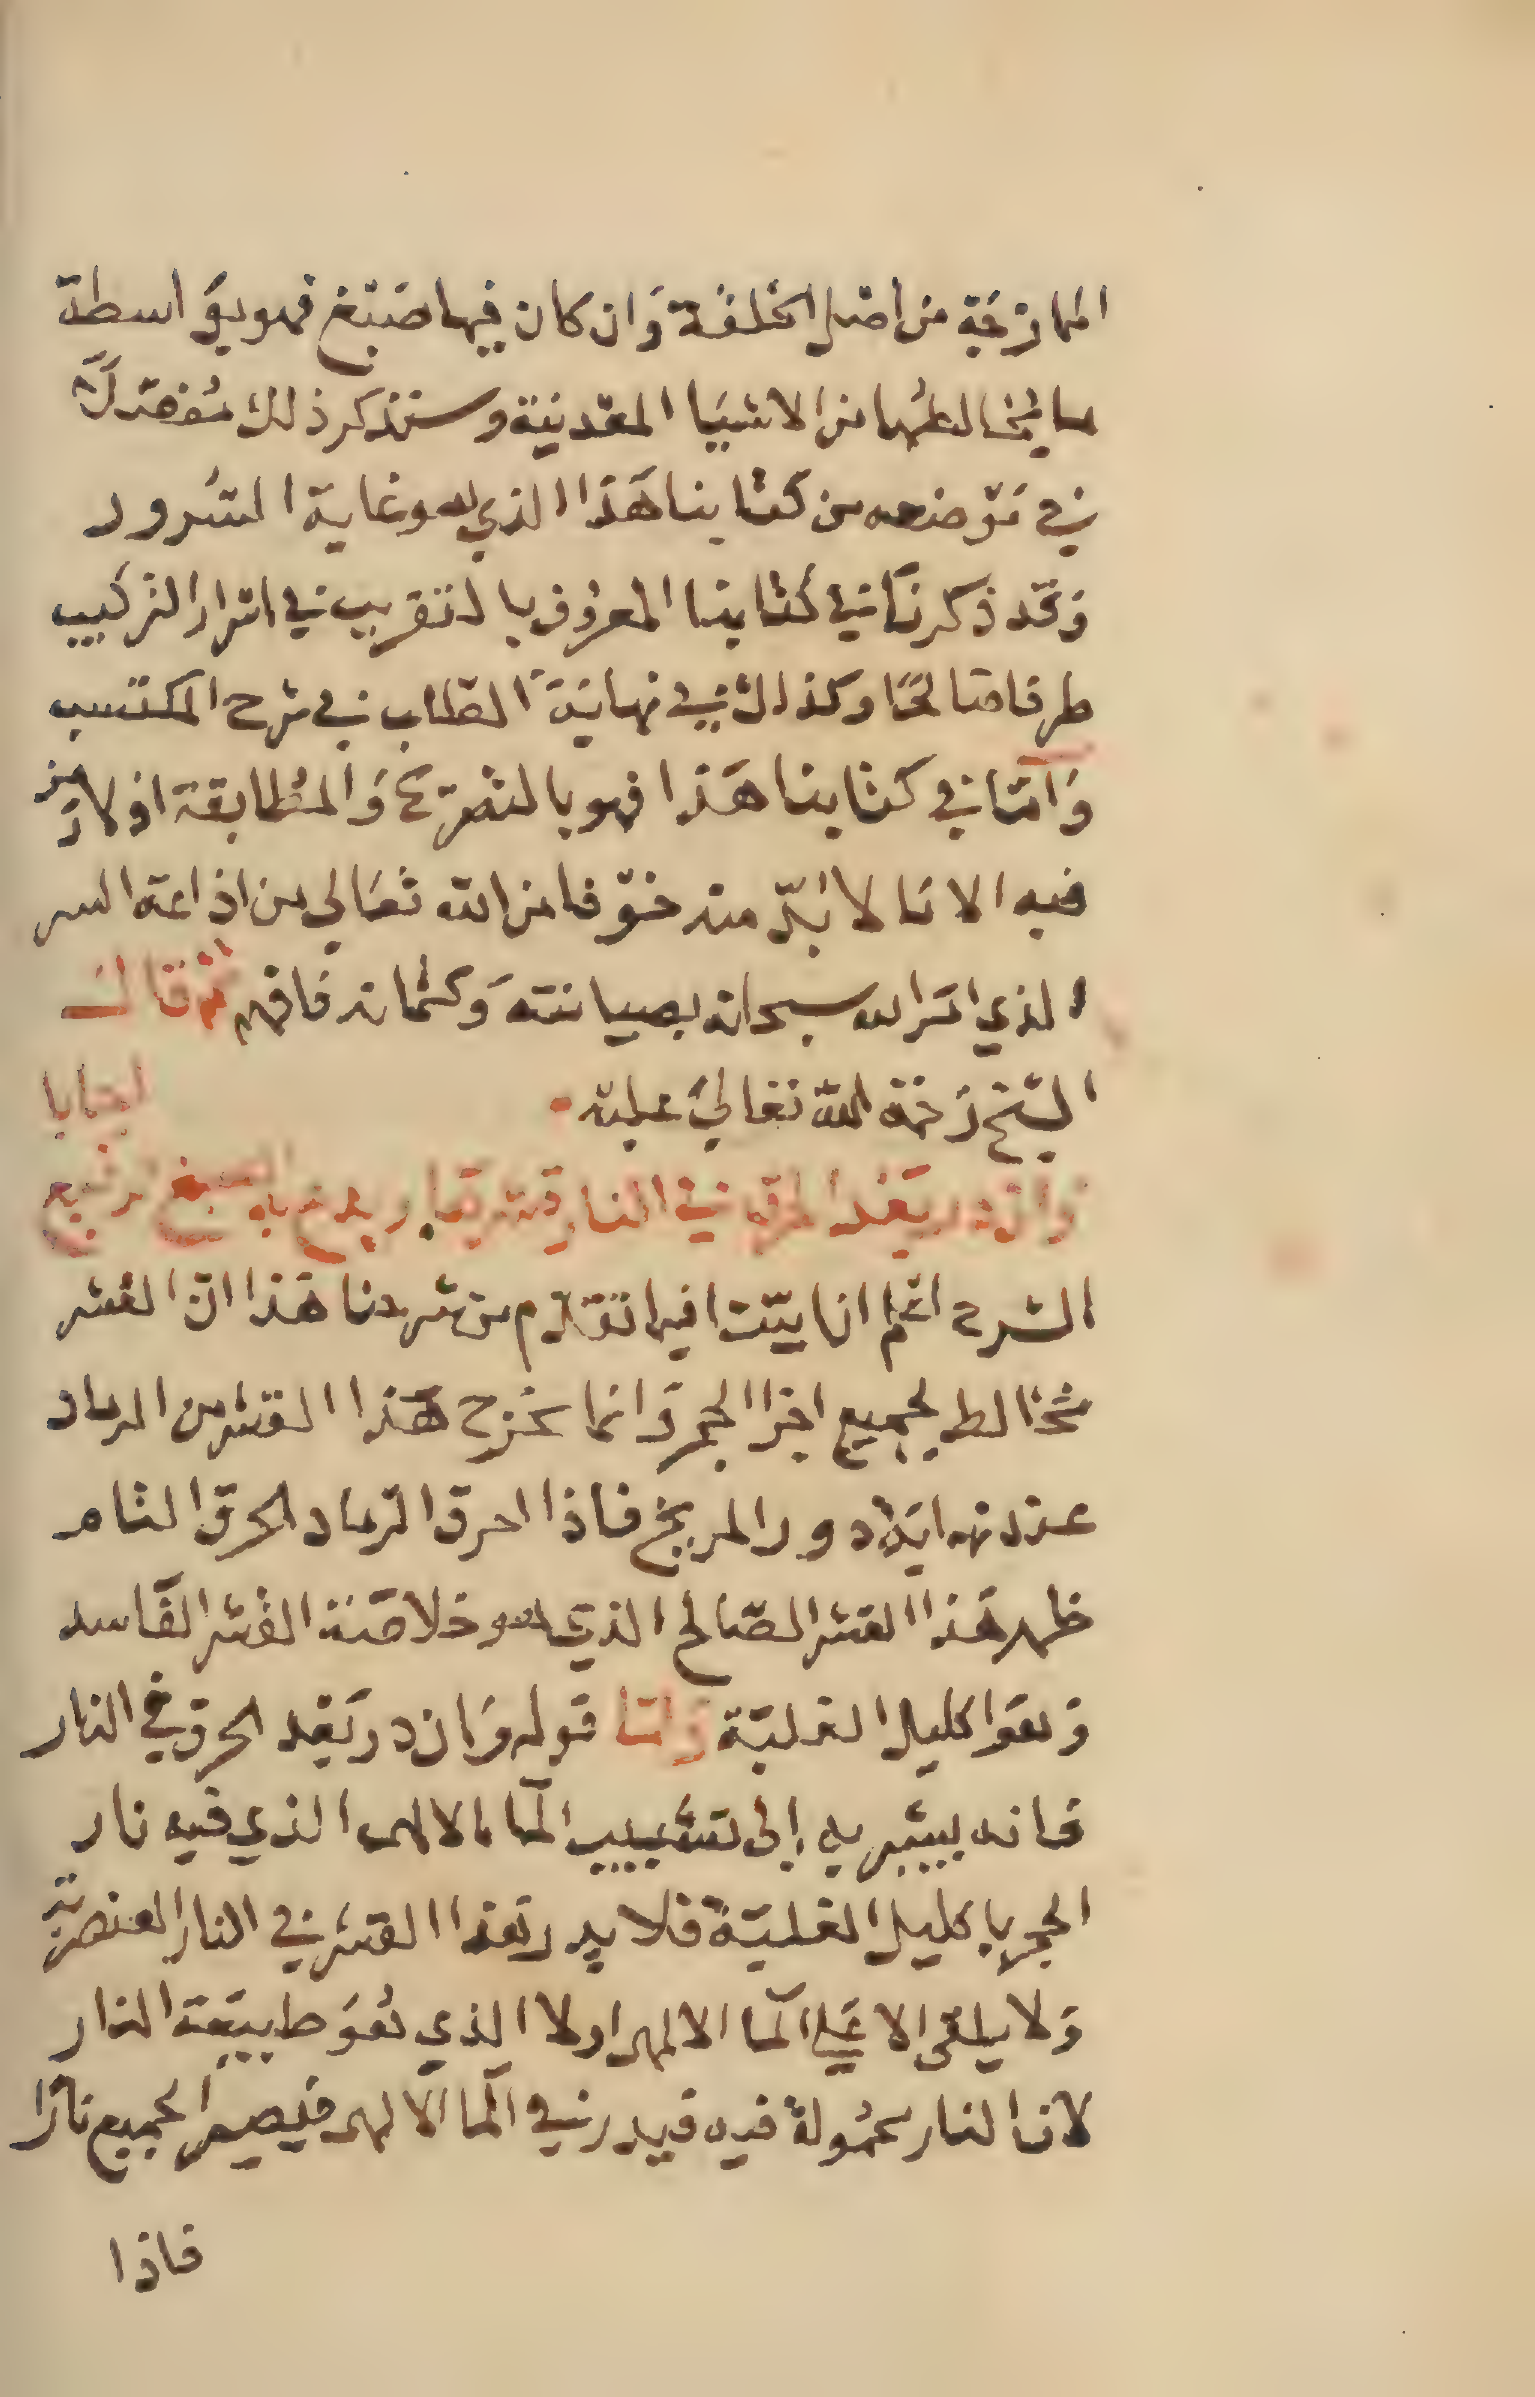 الممازجة من اصل الخلقة وان كان فيها صبغ فهو بواسطة
ما يخالطها من الاشيا المعدنية وسنذكر ذلك مفصلا
في موضعه من كتابنا هذا الذي هو غاية السرور
وقد ذكرنا في كتابنا المعروف بالتقريب في اسرار التركيب
طرفا صالحا وكذلك في نهاية الطلب في شرح المكتسب
واما في كتابنا هذا فهو بالتصريح والمطابقة اذ لا رمز
فيه الا ما لا بد منه خوفا من الله تعالى من اذاعة السر
الذي امر الله سبحانه بصيانته وكتمانه فافهم ثم قال
الشيخ رحمة الله تعالى عليه
وان در بعد الحرق في النار قشرها به الصبغ
الشرح اعلم انا بيّنا فيما تقدم من شرحنا هذا ان القشر
مخالط لجميع اجزا الحجر وانما يخرج هذا القشر من الرماد
عند نهاية دور المريخ فاذا احرق الرماد الحرق التام
ظهر هذا القشر الصالح الذي هو خلاصة القشر الفاسد
وهو اكليل الغلبة واما قوله وان در بعد الحرق في النار
فانه يشير به إلى تشبيب الما الالهى الذي فيه نار
الحجر باكليل الغلبة فلا يدر هذا القشر في النار العنصرية
ولا يلقى الا على الما الالهى اولا الذي هو طبيعة النار
لان النار محمولة فيه فيدر في الما الالهى فيصير الجميع نارا
فاذا